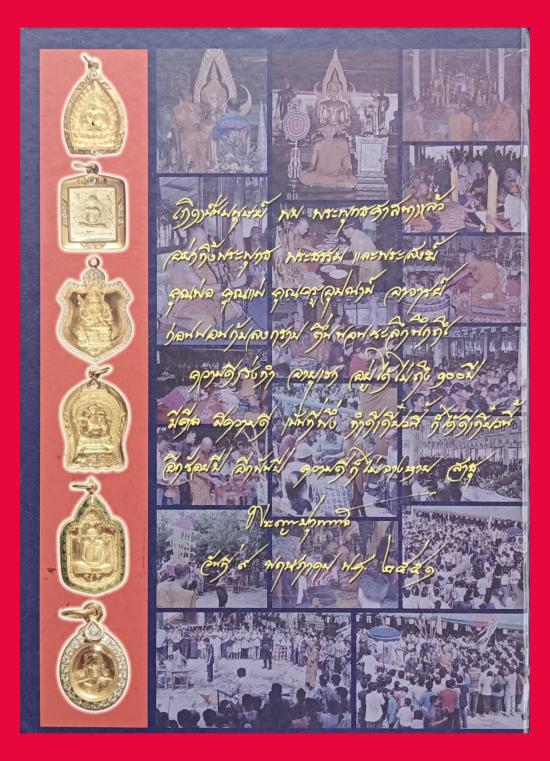 เกิดเป็นมนุษย์ พบ พระพุทธศาสนาแล้ว
อย่าทิ้งพระพุทธ พระธรรม และพระสงฆ์
คุณพ่อ คุณแม่ คุณครูอุปัชฌาย์ อาจารย์
ก่อนนอนก้มลงกราบ ตื่นนอนระลึกนึกถึง
ความดีเร่งทำ อายุเรา อยู่ได้ไม่ถึง ๑๐๐ปี
มีศีล มีความดี เป็นที่พึ่ง ทำดีเดี๋ยวนี้ ก็ได้ดีเดี๋ยวนี้
อีกร้อยปี อีกพันปี ความดีก็ไม่จางหาย สาธุ
วันที่ ๙ พฤษภาคม พ.ศ. ๒๕๕๑